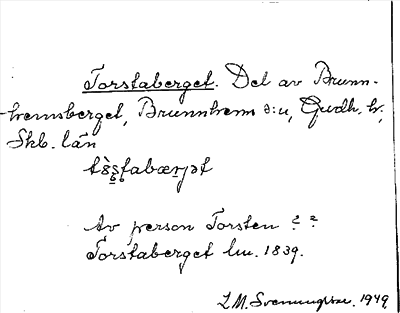 Torstaberget. Del av Brunn-
hemsberget, Brunnhem s:n, Gudh. hr,
Skb. län
Av person Torsten ? ?
Torstaberget lm. 1839.
L.M. Svenungsson. 1949